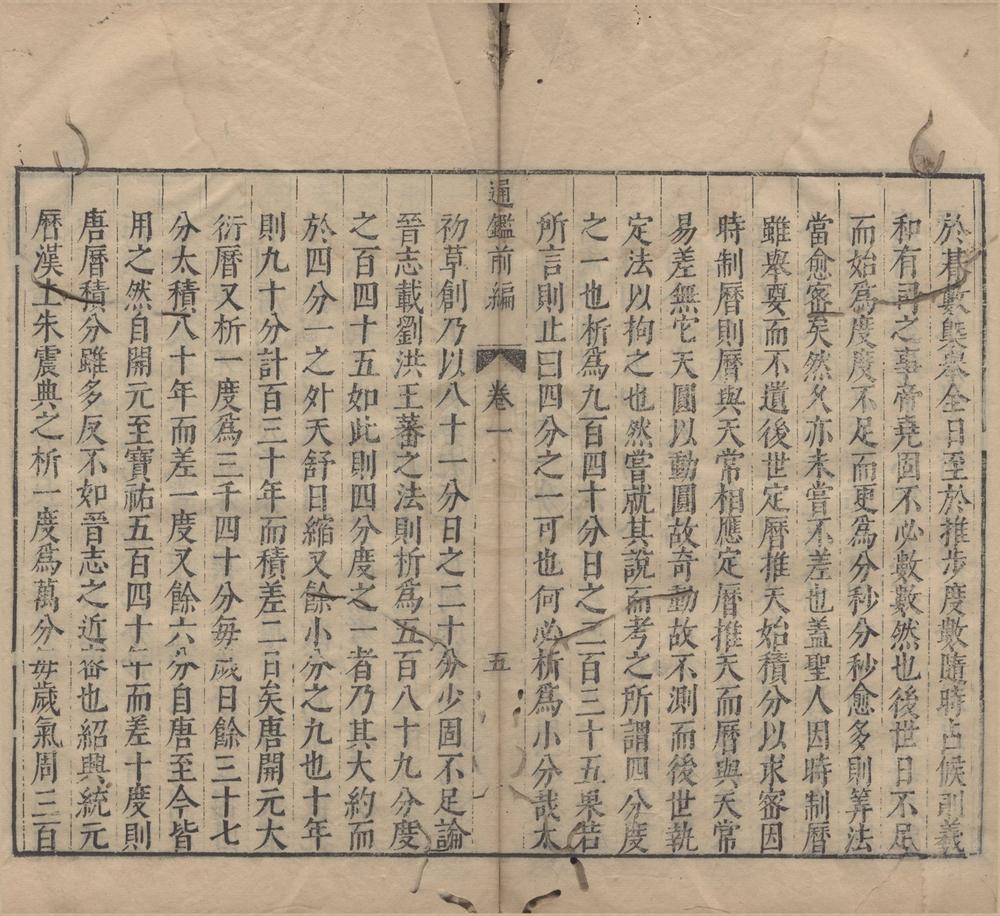 於朞數槩舉全日至於推步度數隨時占候則羲
和有司之事帝堯固不必數數然也後世日不足
而始爲度度不足而更爲分秒分秒愈多則筭法
當愈密矣然久亦未嘗不差也蓋聖人因時制曆
雖舉要而不遺後世定曆推天始積分以求密因
時制曆則曆與天常相應定曆推天而曆與天常
易差無它天圓以動圓故奇動故不測而後世執
定法以拘之也然嘗就其說而考之所謂四分度
之一也析爲九百四十分日之二百三十五果若
所言則止曰四分之一可也何必析爲小分哉太
通鑑前編
卷一
五
初草創乃以八十一分日之二十分少固不足論
晉志載劉洪王蕃之法則析爲五百八十九分度
之百四十五如此則四分度之一者乃其大約而
於四分一之外天舒日縮又餘小分之九也十年
則九十分計百三十年而積差二日矣唐開元大
衍曆又析一度爲三千四十分每歲日餘三十七
分太積八十年而差一度又餘六分自唐至今皆
用之然自開元至寶祐五百四十年而差十度則
唐曆積分雖多反不如晉志之近密也紹興統元
曆漢上朱震典之析一度爲萬分每歲氣周三百